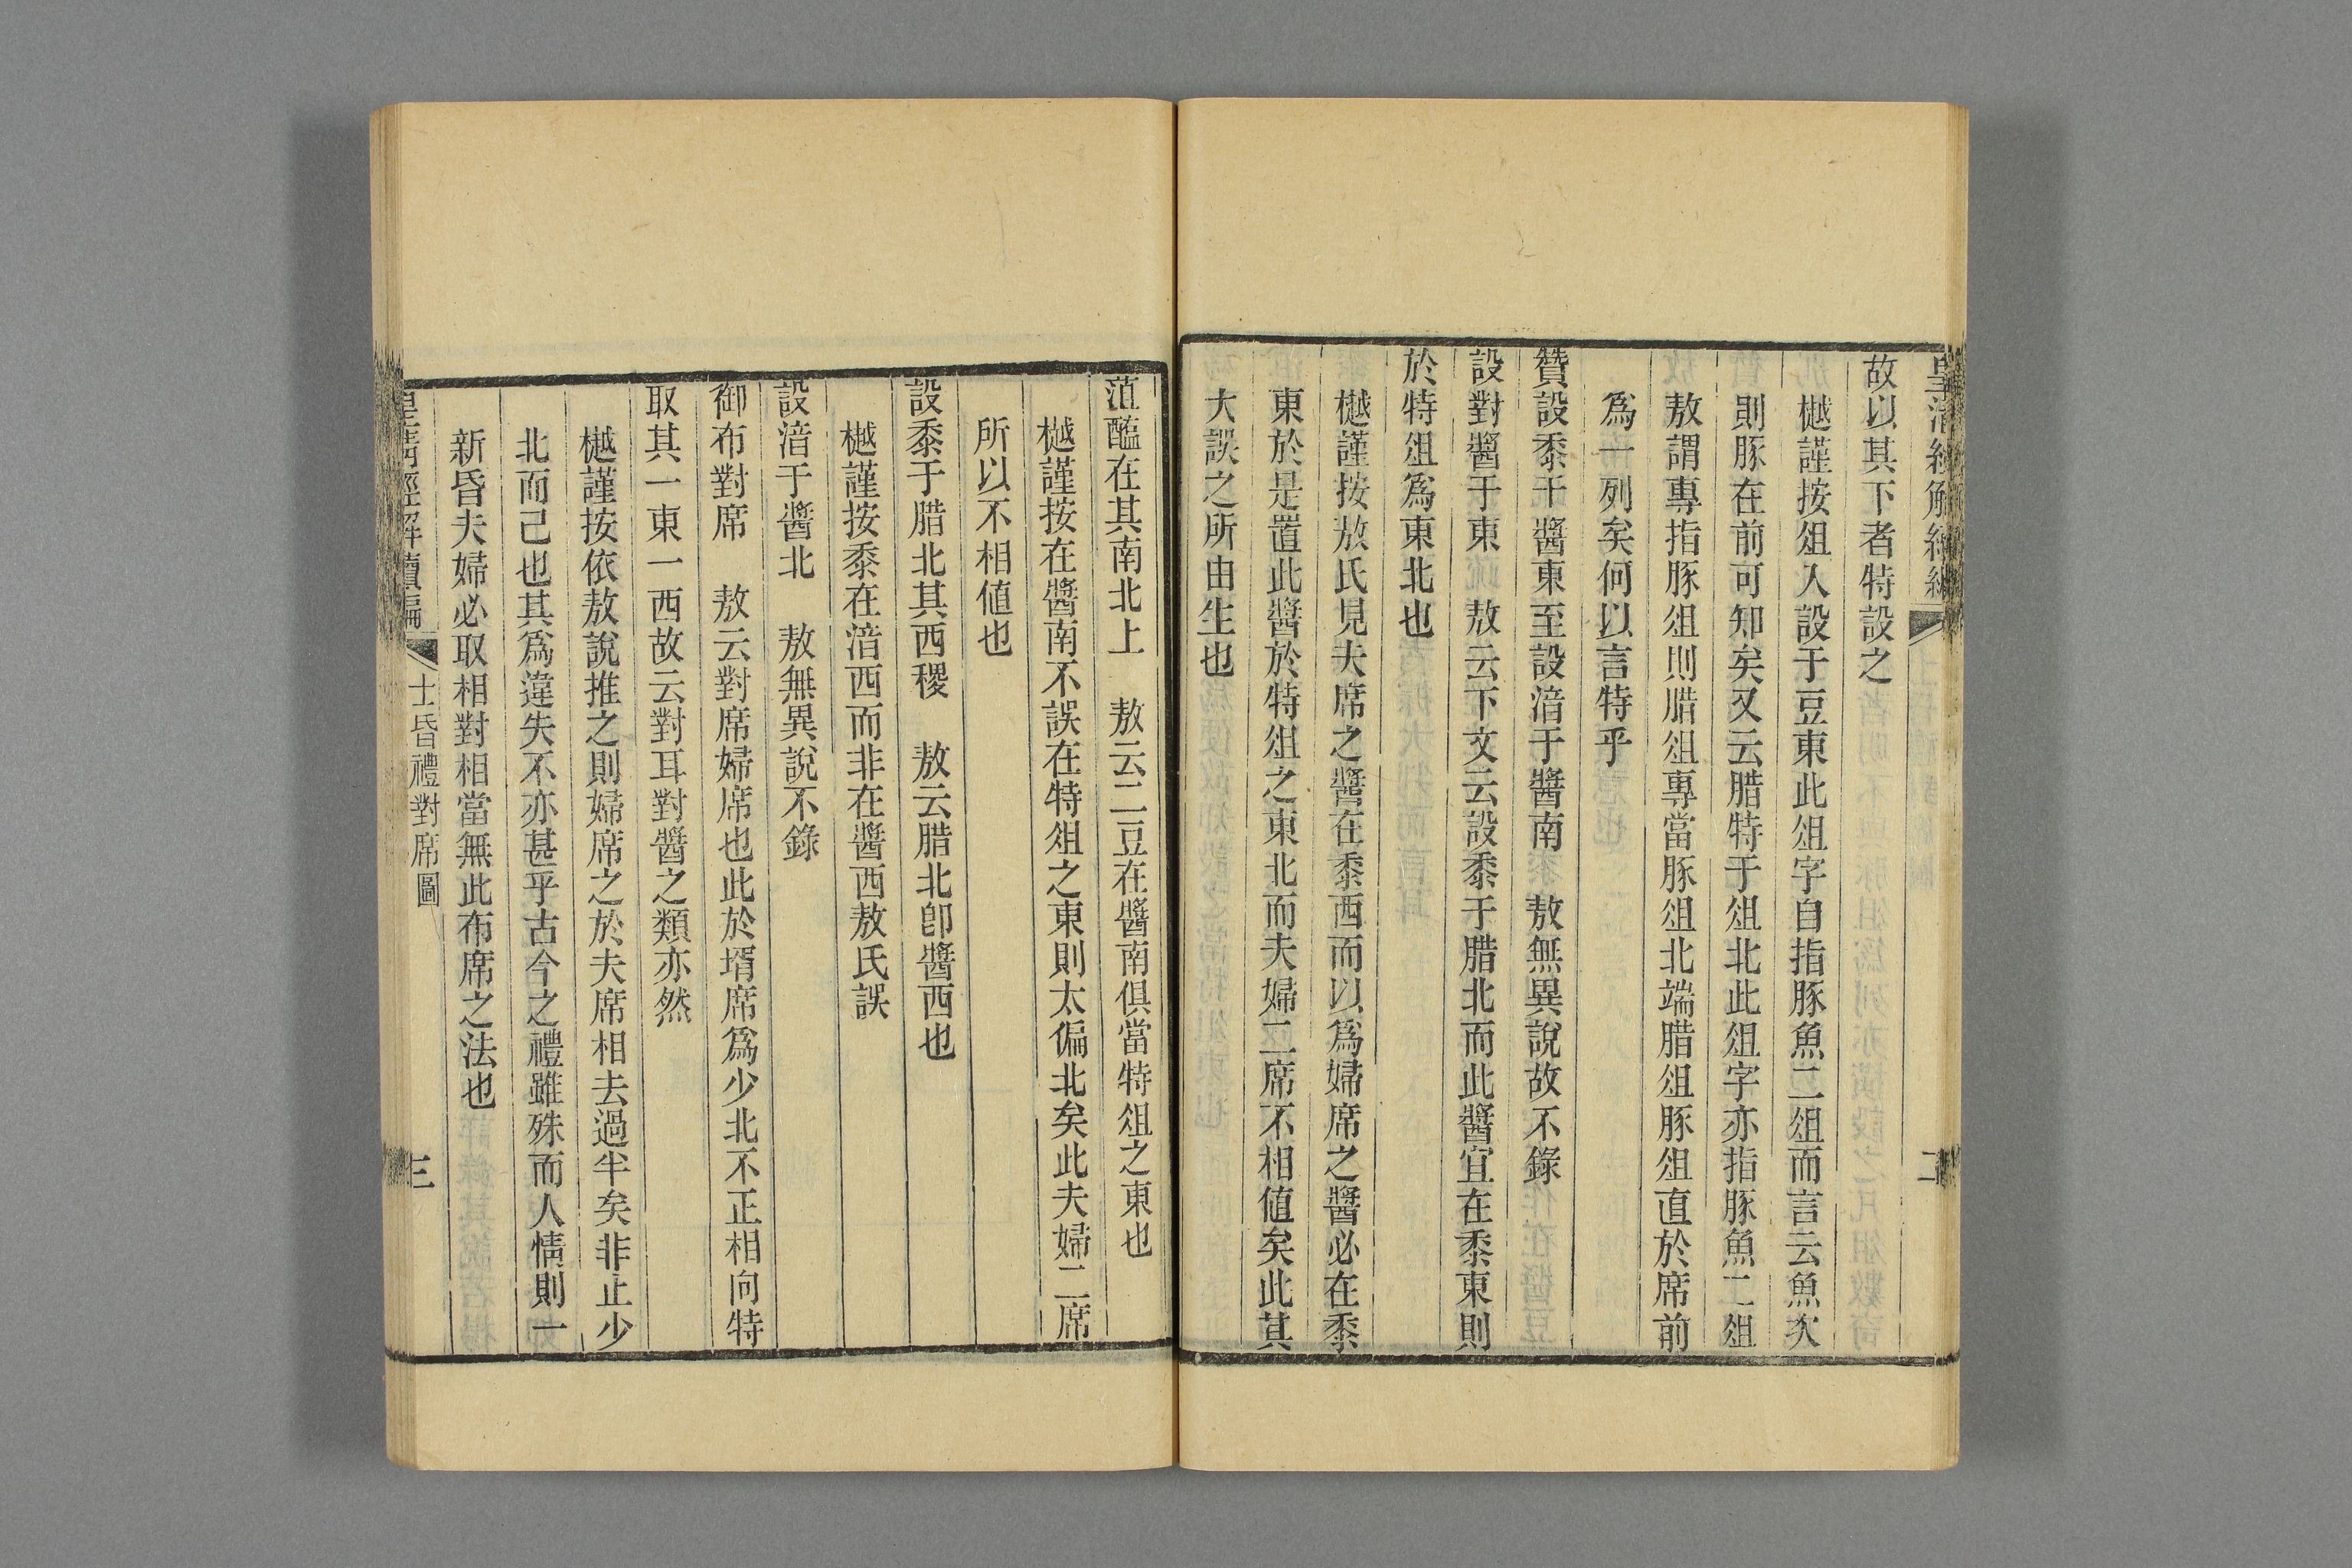 皇清經解續編
二
故以其下者特設之
樾謹按俎入設于豆東此俎字自指豚魚二俎而言云魚次
則豚在前可知矣又云腊特于俎北此俎字亦指豚魚二俎
敖謂專指豚俎則腊俎專當豚俎北端腊俎豚俎直於席前
爲一列矣何以言特乎
贊設黍于醬東至設湆于醬南　敖無異說故不錄
設對醬于東　敖云下文云設黍于腊北而此醬宜在黍東則
於特俎爲東北也
樾謹按敖氏見夫席之醬在黍西而以爲婦席之醬必在黍
東於是置此醬於特俎之東北而夫婦二席不相値矣此其
大誤之所由生也
菹醢在其南北上　敖云二豆在醬南俱當特俎之東也
樾謹按在醬南不誤在特俎之東則太偏北矣此夫婦二席
所以不相値也
設黍于腊北其西稷　敖云腊北卽醬西也
樾謹按黍在湆西而非在醬西敖氏誤
設湆于醬北　敖無異說不錄
御布對席　敖云對席婦席也此於壻席爲少北不正相向特
取其一東一西故云對耳對醬之類亦然
樾謹按依敖說推之則婦席之於夫席相去過半矣非止少
北而己也其爲違失不亦甚乎古今之禮雖殊而人情則一
新昏夫婦必取相對相當無此布席之法也
皇清經解續編
士昏禮對席圖
三